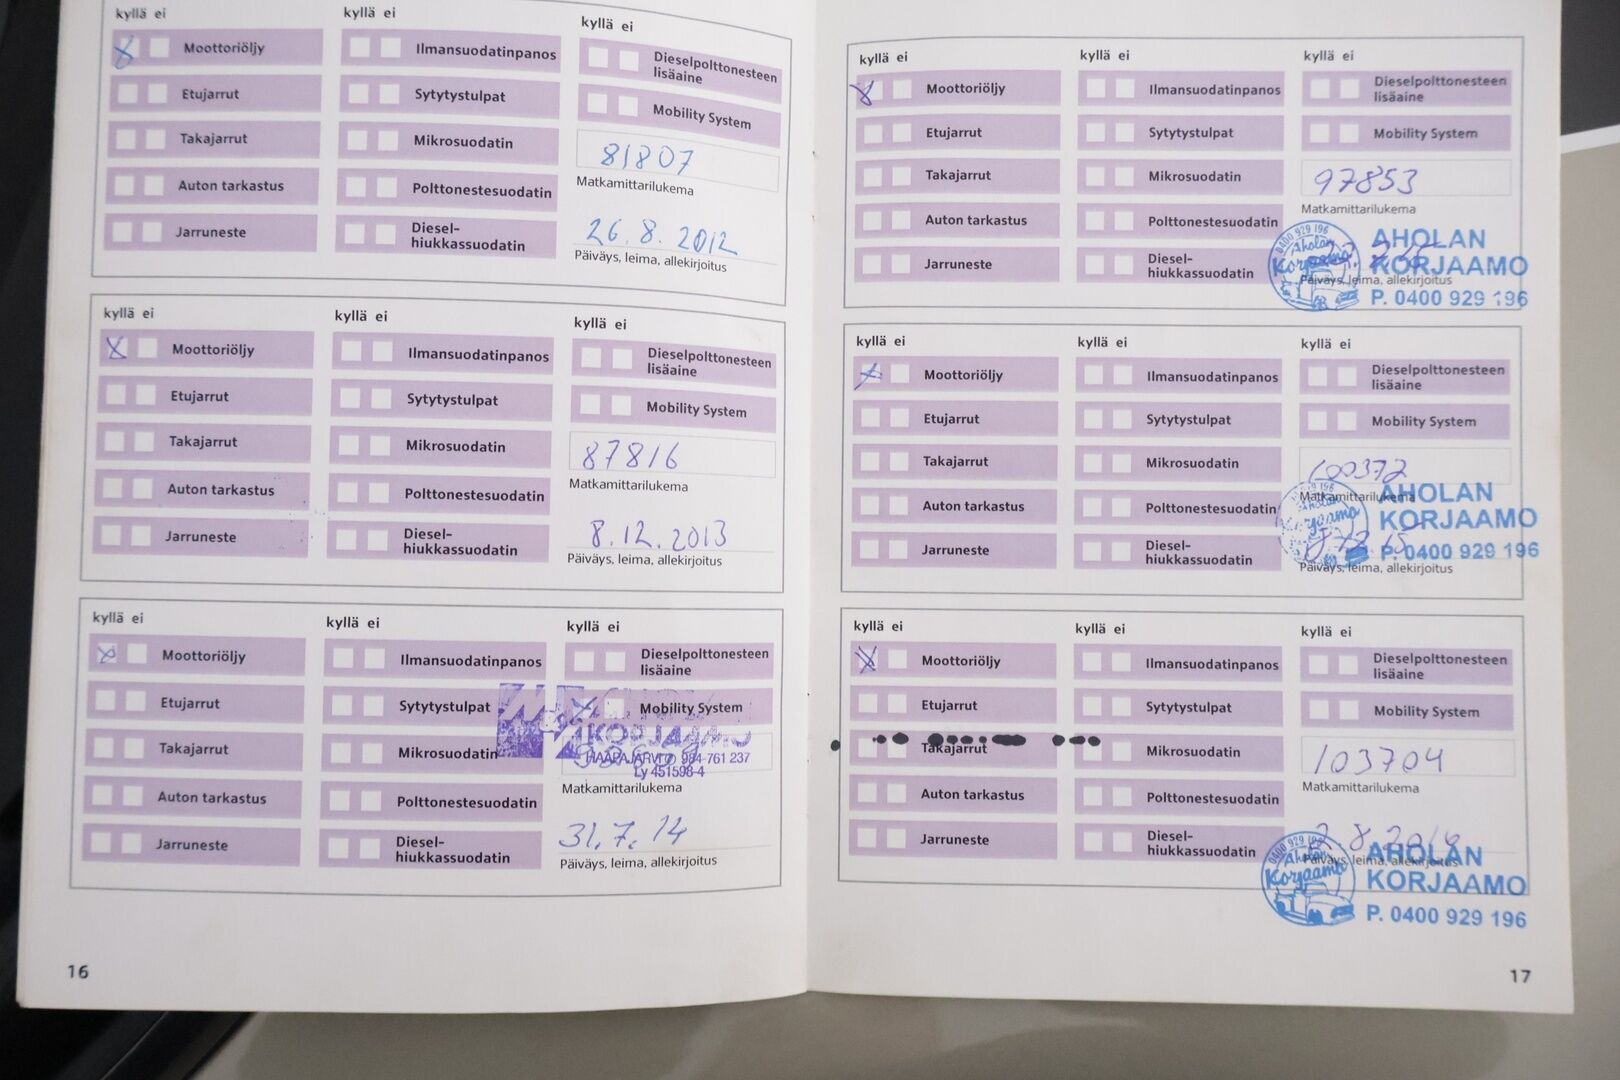 kyllä ei
kyllä ei
kyllä ei
Moottoriöljy
Ilmansuodatinpanos
Dieselpolttonesteen
lisäaine
Etujarrut
Sytytystulpat
Mobility System
Takajarrut
Mikrosuodatin
81807
Matkamittarilukema
Auton tarkastus
Polttonestesuodatin
26.8.2012
Jarruneste
Diesel-
hiukkassuodatin
Päiväys, leima, allekirjoitus
kyllä ei
kyllä ei
kyllä ei
Moottoriöljy
Ilmansuodatinpanos
Dieselpolttonesteen
lisäaine
Etujarrut
Sytytystulpat
Mobility System
Takajarrut
Mikrosuodatin
87816
Matkamittarilukema
Auton tarkastus
Polttonestesuodatin
8.12.2013
Jarruneste
Diesel-
hiukkassuodatin
Päiväys, leima, allekirjoitus
kyllä ei
kyllä ei
kyllä ei
Moottoriöljy
Ilmansuodatinpanos
Dieselpolttonesteen
lisäaine
Etujarrut
Sytytystulpat
Mobility System
KORJAAMO
Takajarrut
Mikrosuodatin
HAAPAJÄRVI 984 761 237
Ly 451598-4
Matkamittarilukema
Auton tarkastus
Polttonestesuodatin
31.7.14
Jarruneste
Diesel-
hiukkassuodatin
Päiväys, leima, allekirjoitus
16
kyllä ei
kyllä ei
kyllä ei
Moottoriöljy
Ilmansuodatinpanos
Dieselpolttonesteen
lisäaine
Etujarrut
Sytytystulpat
Mobility System
Takajarrut
Mikrosuodatin
97853
Matkamittarilukema
Auton tarkastus
Polttonestesuodatin
0400 929 196
Aholan
Korjaamo
AHOLAN
KORJAAMO
P. 0400 929 196
Jarruneste
Diesel-
hiukkassuodatin
Päiväys, leima, allekirjoitus
kyllä ei
kyllä ei
kyllä ei
Moottoriöljy
Ilmansuodatinpanos
Dieselpolttonesteen
lisäaine
Etujarrut
Sytytystulpat
Mobility System
Takajarrut
Mikrosuodatin
100372
Matkamittarilukema
Auton tarkastus
Polttonestesuodatin
Korjaamo
AHOLAN
KORJAAMO
P. 0400 929 196
Jarruneste
Diesel-
hiukkassuodatin
Päiväys, leima, allekirjoitus
kyllä ei
kyllä ei
kyllä ei
Moottoriöljy
Ilmansuodatinpanos
Dieselpolttonesteen
lisäaine
Etujarrut
Sytytystulpat
Mobility System
Takajarrut
Mikrosuodatin
103704
Matkamittarilukema
Auton tarkastus
Polttonestesuodatin
2.8.2016
Jarruneste
Diesel-
hiukkassuodatin
Päiväys, leima, allekirjoitus
0400 929 196
Aholan
Korjaamo
AHOLAN
KORJAAMO
P. 0400 929 196
17